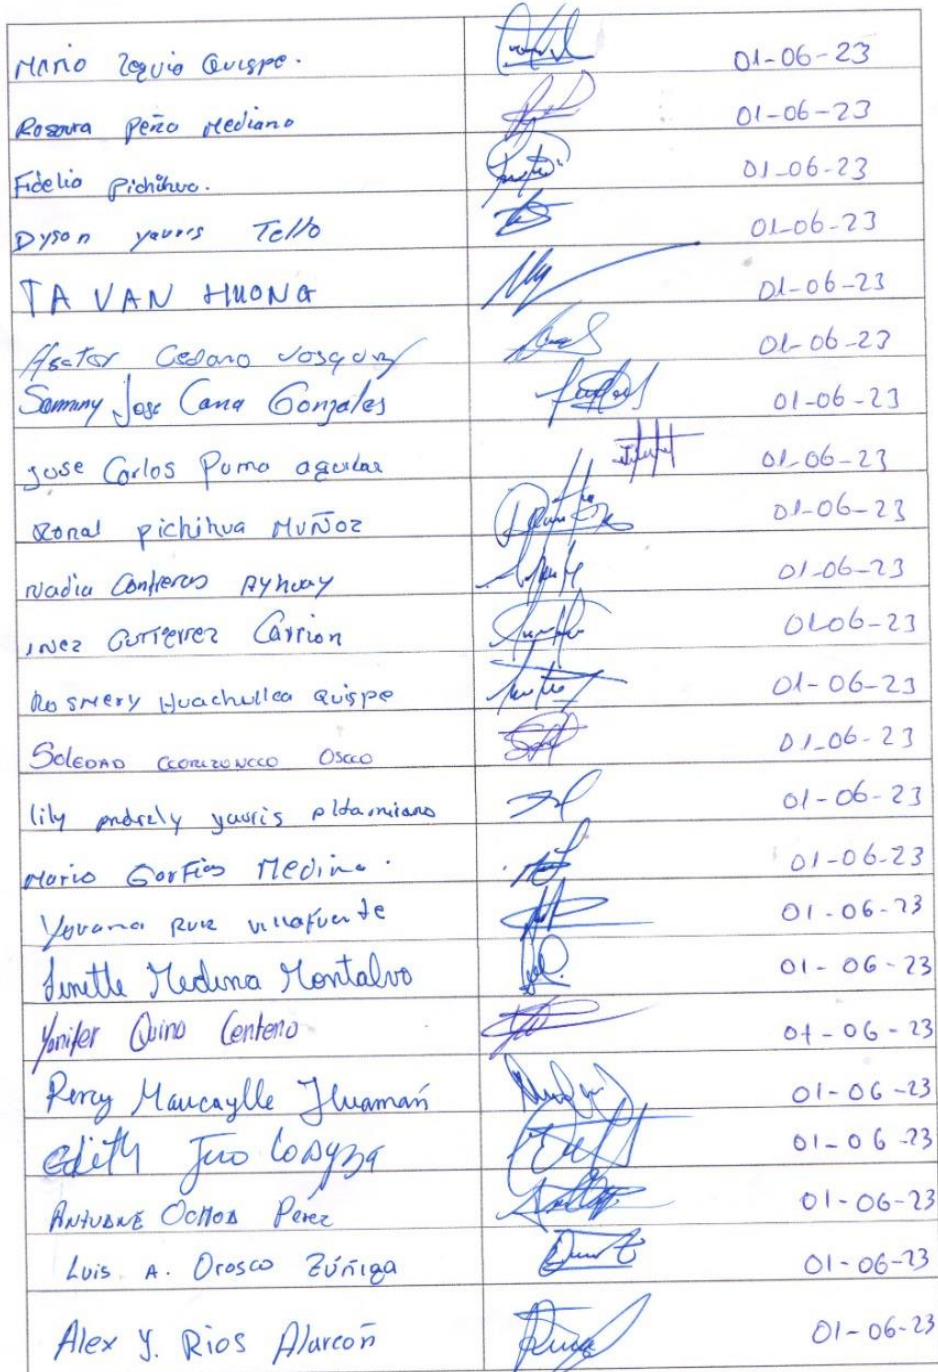 Mario Zequio Quispe. 01-06-23
Rosaura Peña Mediano 01-06-23
Fidelio Pichihua. 01-06-23
Dyson yauris Tello 01-06-23
TA VAN HUONG 01-06-23
Hector Cedano Vasquez 01-06-23
Sammy Jose Cana Gonzales 01-06-23
Jose Carlos Puma aguilar 01-06-23
Ronal pichihua MUÑOZ 01-06-23
Nadia Contreras Ayhuay 01-06-23
INEZ GUTIERREZ Carrion 01-06-23
Rosmery Huachullca Quispe 01-06-23
SOLEDAD CCORIZONCCO Oscco 01-06-23
lily yauris altamirano 01-06-23
Mario Garfias Medina. 01-06-23
Yovana Ruiz villafuerte 01-06-23
Linette Medina Montalvo 01-06-23
Yenifer Quino Centeno 01-06-23
Percy Maucaylle Huamán 01-06-23
Edith Juro Loayza 01-06-23
ANTUANÉ OCHOA Pérez 01-06-23
Luis A. Orosco Zúñiga 01-06-23
Alex Y. Rios Alarcón 01-06-23